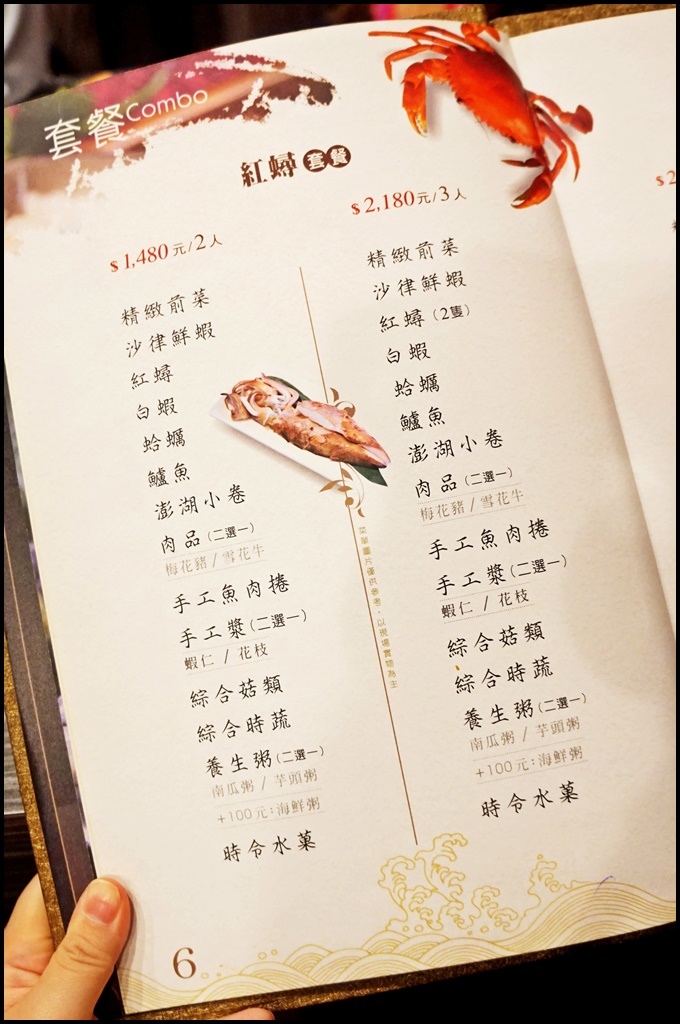 套餐Combo
紅蟳套餐
$1,480元/2人
精緻前菜
沙律鮮蝦
紅蟳
白蝦
蛤蠣
鱸魚
澎湖小卷
肉品(二選一)
梅花豬 / 雪花牛
手工魚肉捲
手工漿(二選一)
蝦仁 / 花枝
綜合菇類
綜合時蔬
養生粥(二選一)
南瓜粥 / 芋頭粥
+100元:海鮮粥
時令水菓
$2,180元/3人
精緻前菜
沙律鮮蝦
紅蟳(2隻)
白蝦
蛤蠣
鱸魚
澎湖小卷
肉品(二選一)
梅花豬 / 雪花牛
手工魚肉捲
手工漿(二選一)
蝦仁 / 花枝
綜合菇類
綜合時蔬
養生粥(二選一)
南瓜粥 / 芋頭粥
+100元:海鮮粥
時令水菓
菜單圖片僅供參考,以現場實物為主
6
$2